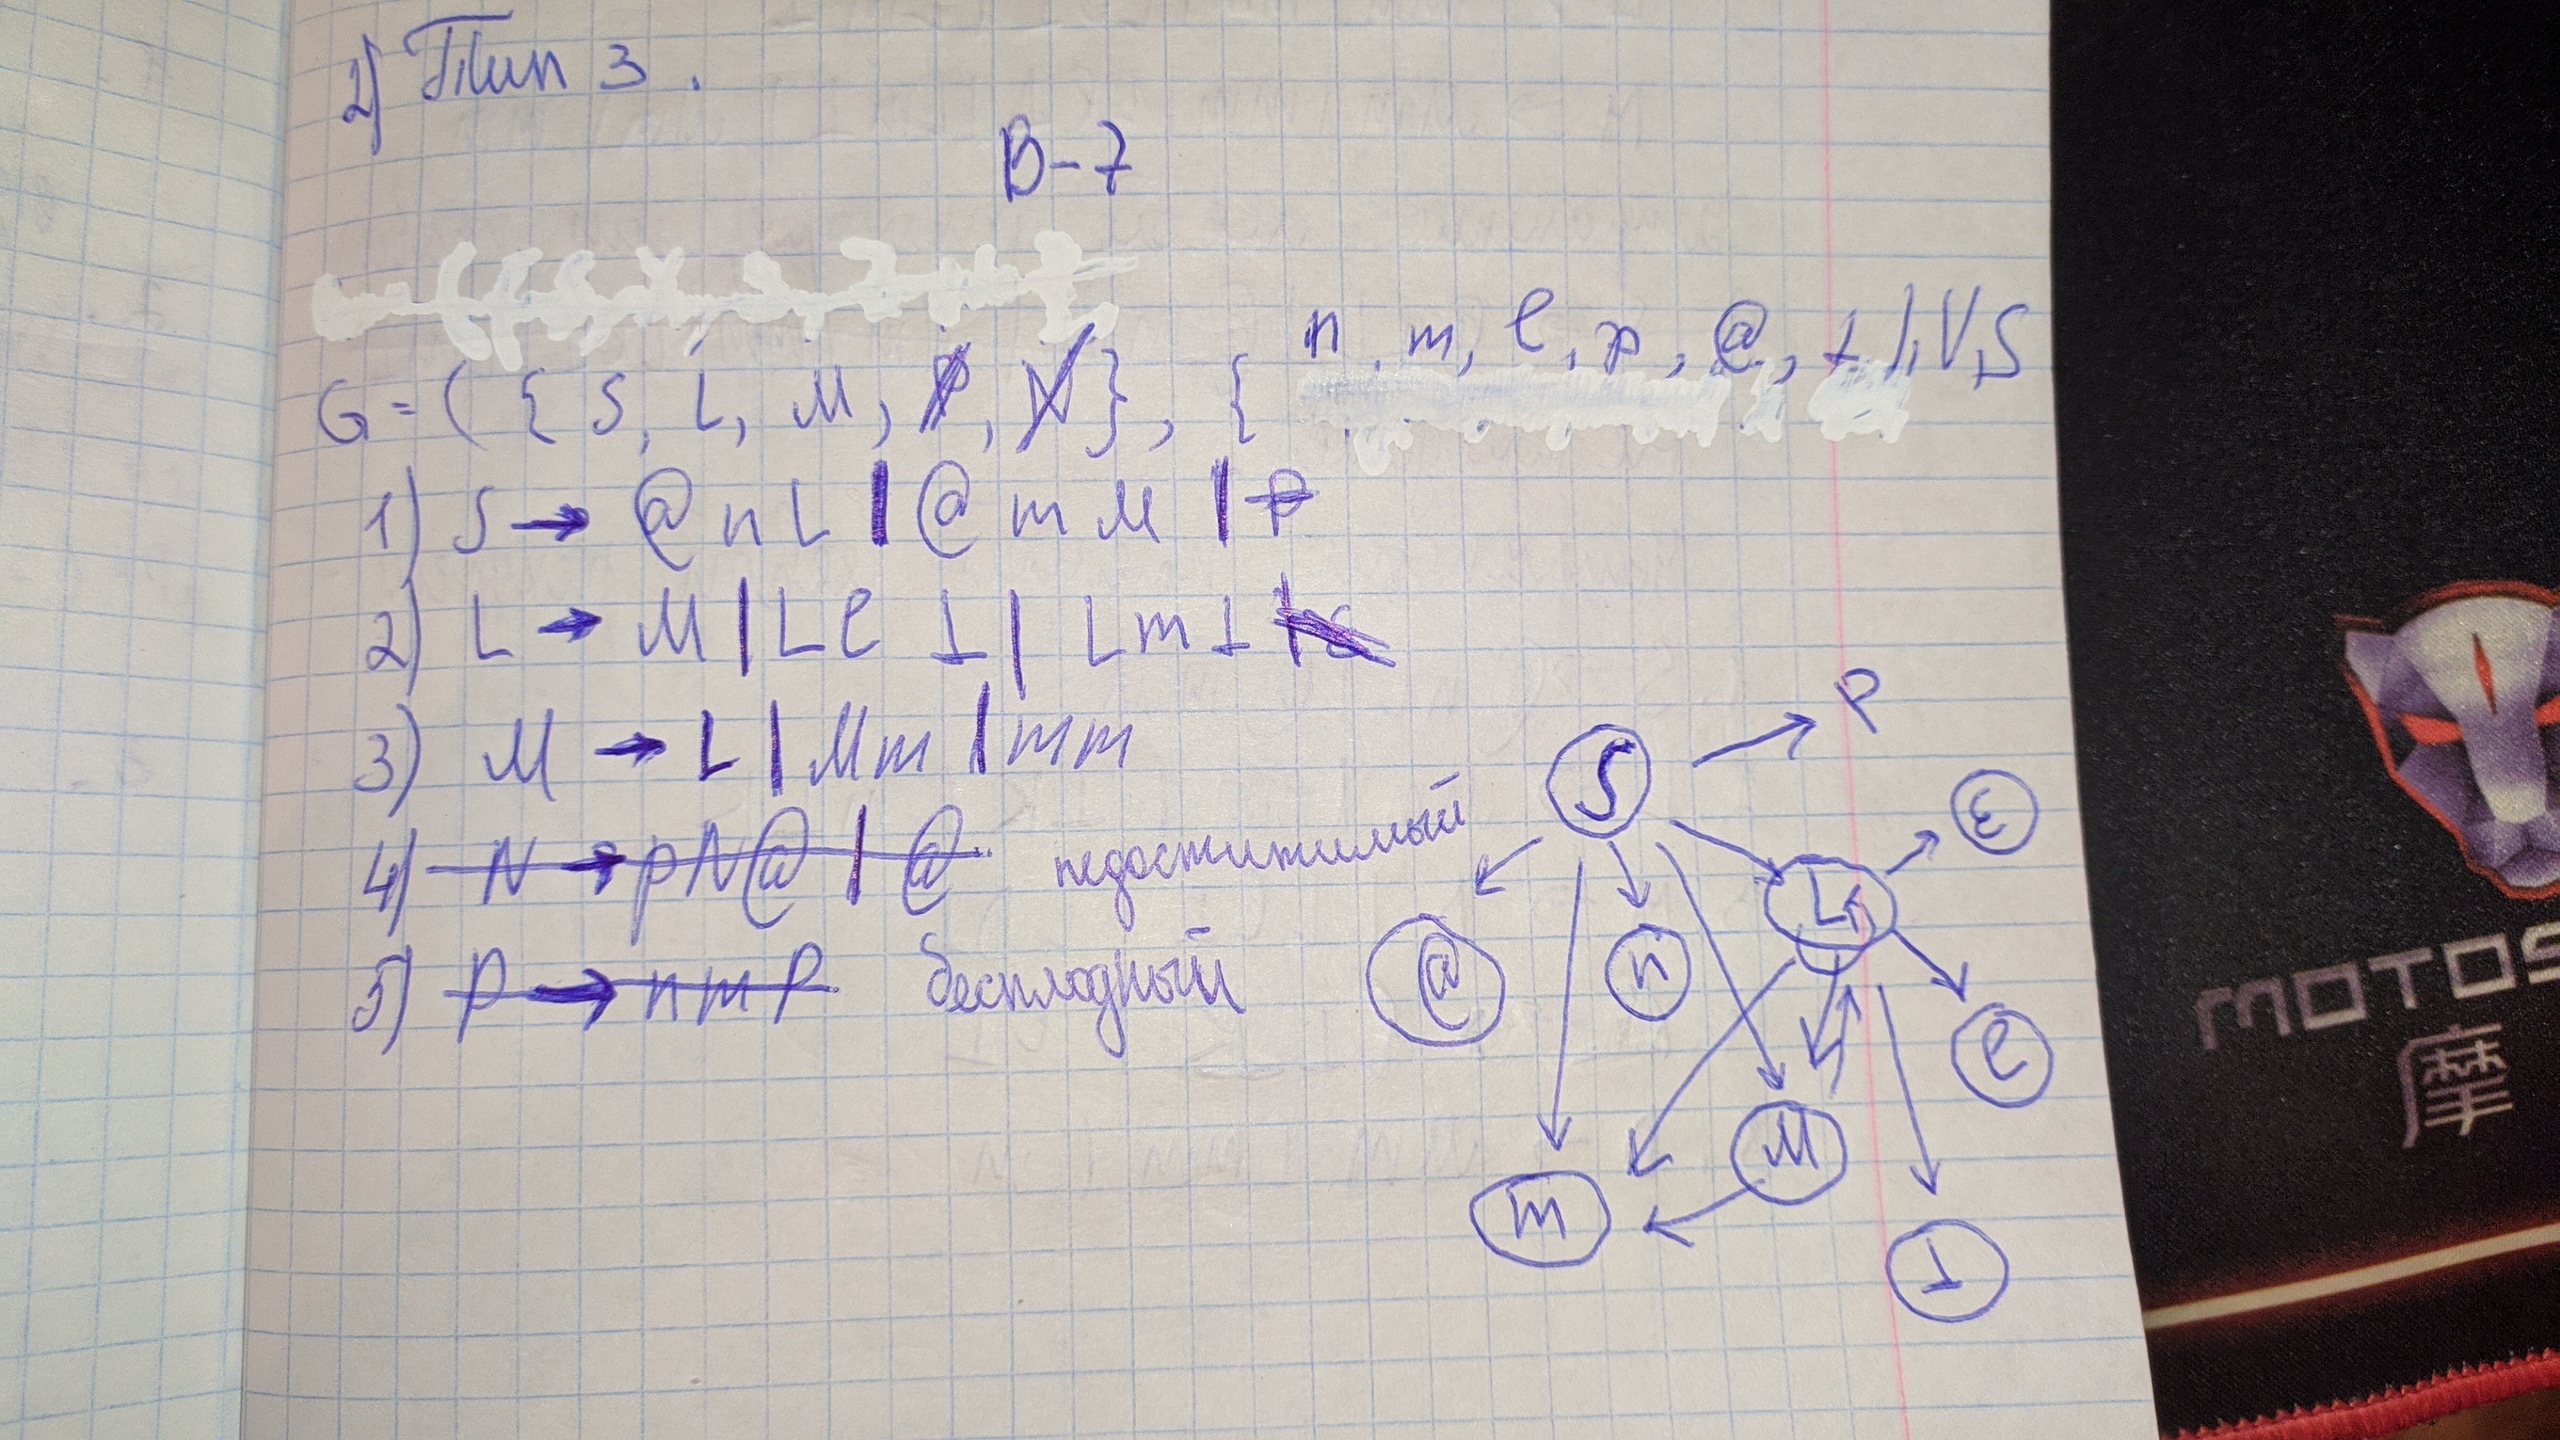 2) Тип 3.
В-7
G = ( { S, L, M, P, N }, { n, m, l, p, @, ⊥ }, V, S
1) S → @ n L | @ m M | P
2) L → M | L l ⊥ | L m ⊥ | ε
3) M → L | M m | m m
4) N → p N @ | @ недостижимый
5) P → n m P бесплодный
P
S
ε
L
@
n
l
M
m
⊥
MOTOS
摩